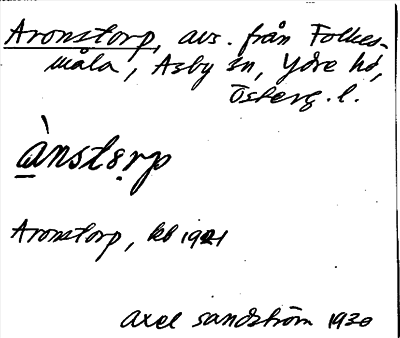 Aronstorp, avs. från Folkes-
måla, Asby sn, Ydre hd,
Österg. l.
à̲nstọrp
Aronstorp, kb 1921
Axel Sandström 1930